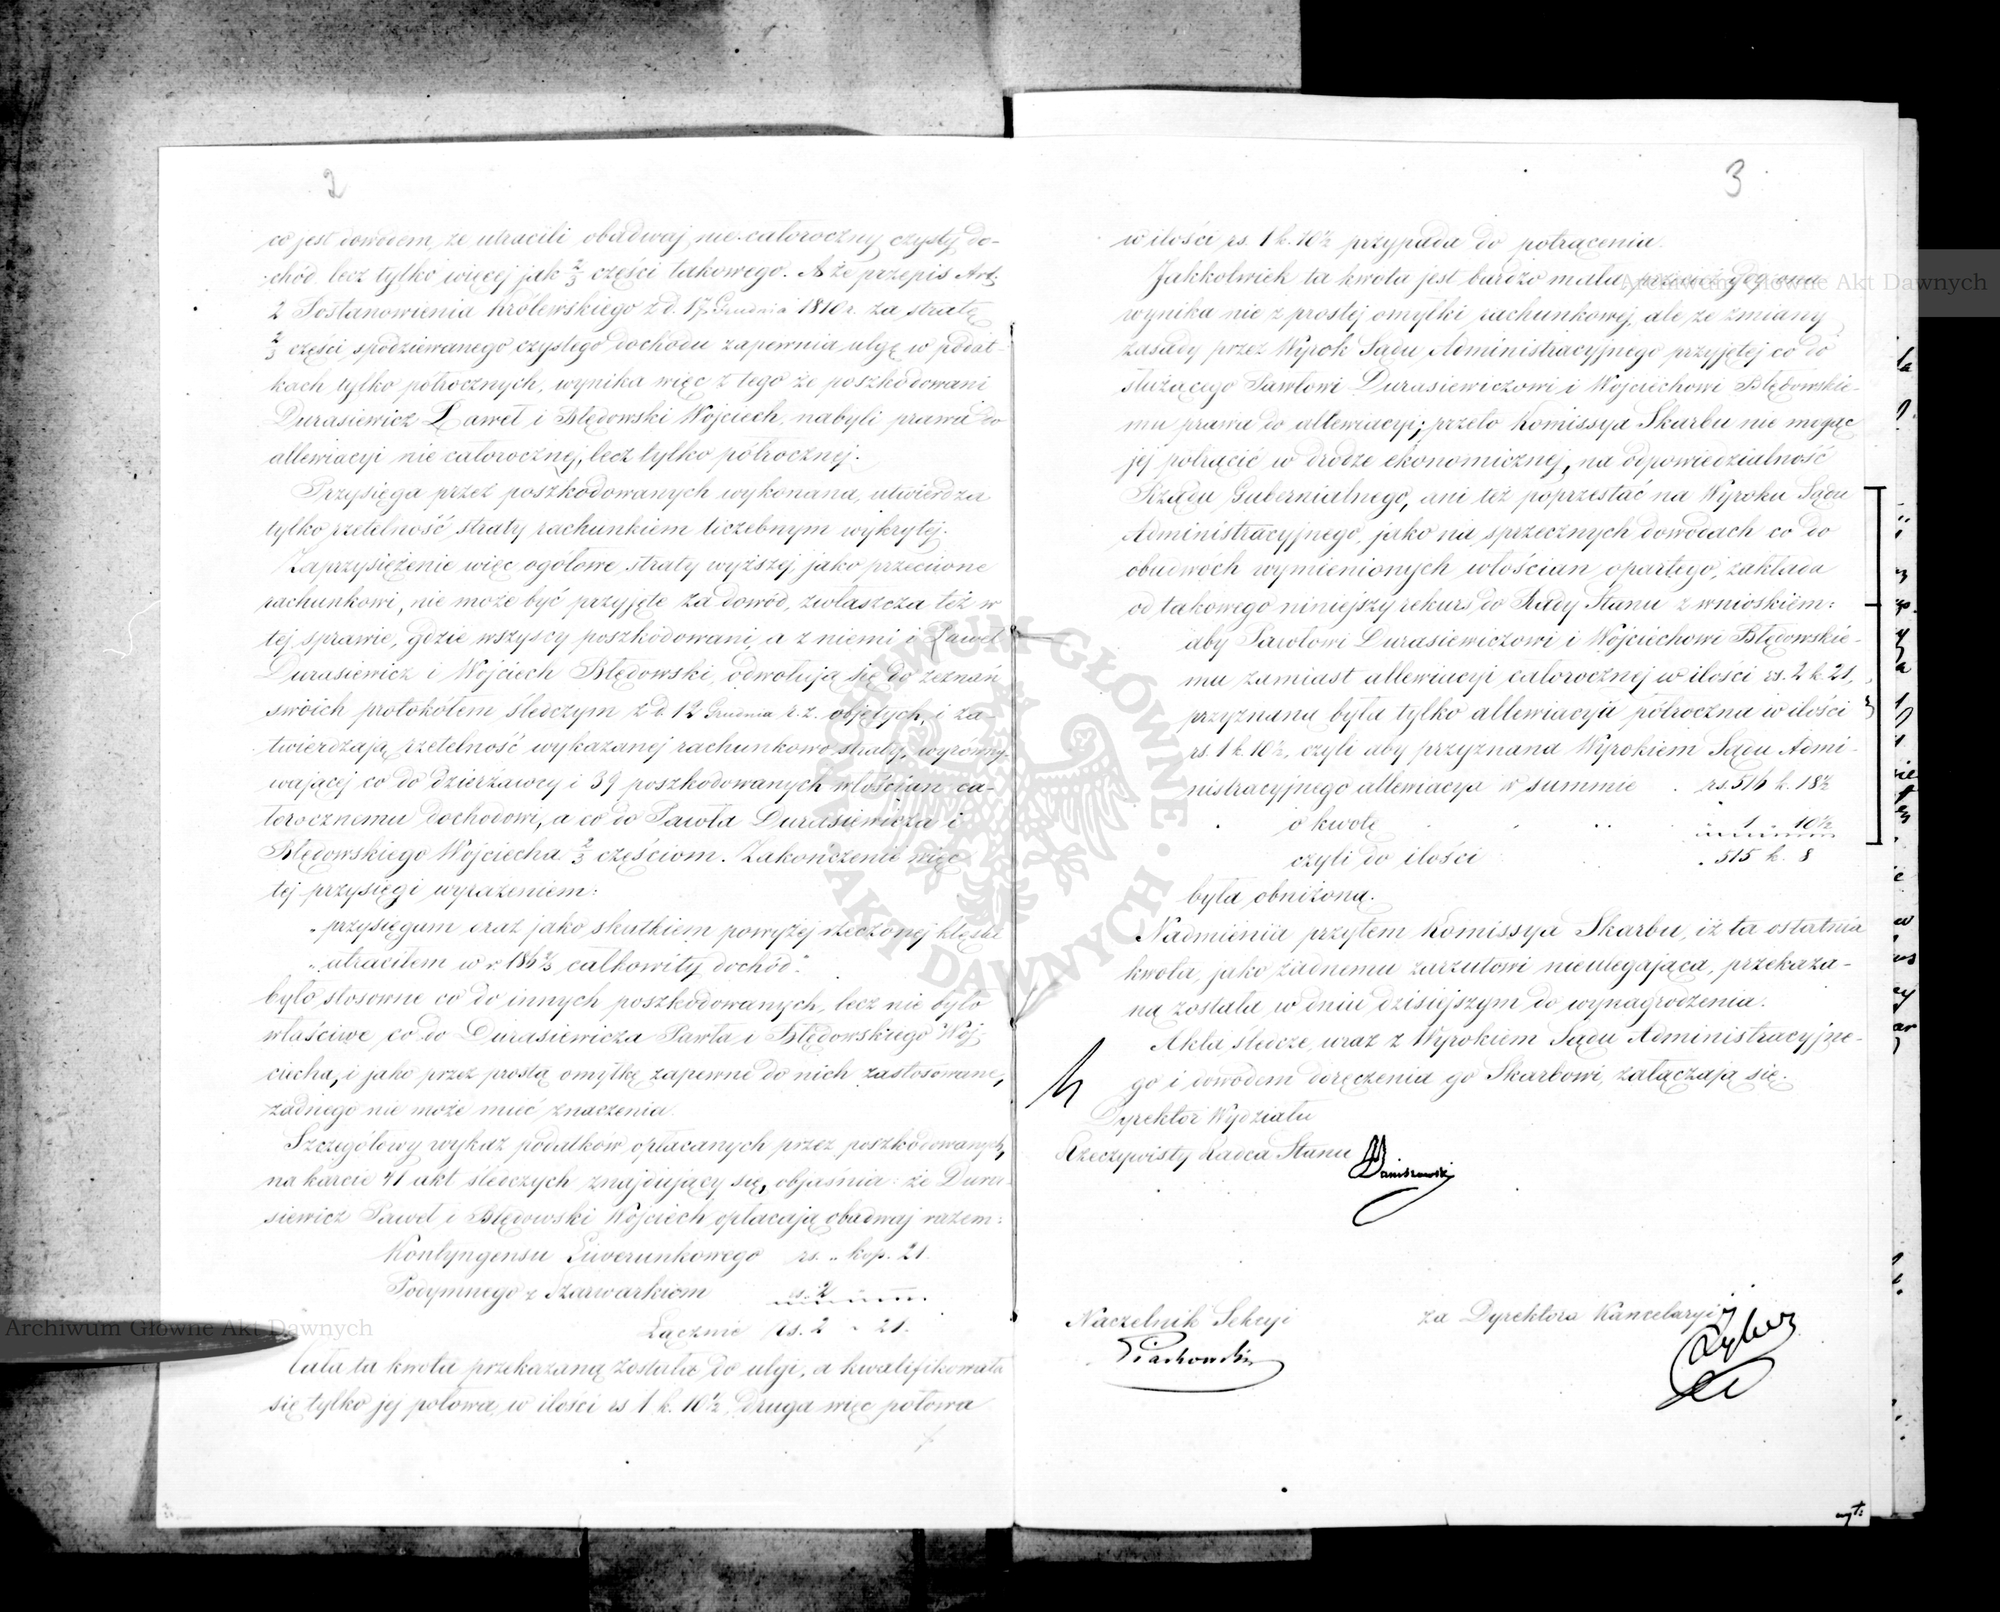 2
co jest dowodem, że utracili obadwaj nie całoroczny czysty do-
chód lecz tylko więcej jak 2/3 części takowego. A że przepis Art.
2 Postanowienia Królewskiego z d. 17 Grudnia 1810 r. za stratę
2/3 części spodziewanego czystego dochodu zapewnia ulgę w podat-
kach tylko półrocznych, wynika więc z tego że poszkodowani
Durasiewicz Paweł i Błędowski Wojciech, nabyli prawa do
allewiacyi nie całorocznej, lecz tylko półrocznej.
Przysięga przez poszkodowanych wykonana, utwierdza
tylko rzetelność straty rachunkiem liczebnym wykrytej.
Zaprzysiężenie więc ogółowe straty wyższej jako przeciwne
rachunkowi, nie może być przyjęte za dowód, zwłaszcza też w
tej sprawie, gdzie wszyscy poszkodowani, a z niemi i Paweł
Durasiewicz i Wojciech Błędowski, odwołują się do zeznań
swoich protokółem śledczym z d. 12 Grudnia r. z. objętych, i za-
twierdzają rzetelność wykazanej rachunkowo straty, wyrówny-
wającej co do dzierżawcy i 39 poszkodowanych włościan ca-
łorocznemu dochodowi, a co do Pawła Durasiewicza i
Błędowskiego Wojciecha 2/3 częściom. Zakończenie więc
tej przysięgi wyrażeniem:
„przysięgam oraz jako skutkiem powyżej rzeczonej klęski
„utraciłem w r. 186 2/3 całkowity dochód"
było stosowne co do innych poszkodowanych, lecz nie było
właściwe co do Durasiewicza Pawła i Błędowskiego Woj-
ciecha, i jako przez prostą omyłkę zapewne do nich zastosowane,
żadnego nie może mieć znaczenia.
Szczegółowy wykaz podatków opłacanych przez poszkodowanych,
na karcie 41 akt śledczych znajdujący się, objaśnia: że Dura-
siewicz Paweł i Błędowski Wojciech opłacają obadwaj razem:
Kontyngensu Liwerunkowego rs. „ kop. 21.
Podymnego z Szarwarkiem „ 2
Łącznie rs. 2 „ 21.
Cała ta kwota przekazaną została do ulgi, a kwalifikowała
się tylko jej połowa w ilości rs 1 k. 10 1/2. Druga więc połowa
3
w ilości rs. 1 k. 10 1/2 przypada do potrącenia.
Jakkolwiek ta kwota jest bardzo mała, przecież gdy ona
wynika nie z prostej omyłki rachunkowej, ale ze zmiany
zasady przez Wyrok Sądu Administracyjnego przyjętej co do
służącego Pawłowi Durasiewiczowi i Wojciechowi Błędowskie-
mu prawa do allewiacyi; przeto Komissya Skarbu nie mogąc
jej potrącić w drodze ekonomicznej, na odpowiedzialność
Rządu Gubernialnego, ani też poprzestać na Wyroku Sądu
Administracyjnego, jako na sprzecznych dowodach co do
obudwóch wymienionych włościan opartego, zakłada
od takowego niniejszy rekurs do Rady Stanu z wnioskiem:
aby Pawłowi Durasiewiczowi i Wojciechowi Błędowskie-
mu zamiast allewiacyi całorocznej w ilości rs. 2 k. 21,
przyznana była tylko allewiacyja półroczna w ilości
rs. 1 k. 10 1/2, czyli aby przyznana Wyrokiem Sądu Admi-
nistracyjnego allewiacya w summie rs. 516 k. 18 1/2
o kwotę „ 1 „ 10 1/2
czyli do ilości „ 515 k. 8
była obniżona.
Nadmienia przytem Komissya Skarbu, iż ta ostatnia
kwota, jako żadnemu zarzutowi nieulegająca, przekaza-
ną została w dniu dzisiejszym do wynagrodzenia.
Akta śledcze, wraz z Wyrokiem Sądu Administracyjne-
go i dowodem doręczenia go Skarbowi, załączają się.
Dyrektor Wydziału
Rzeczywisty Radca Stanu
Naczelnik Sekcyi
za Dyrektora Kancelaryi
ARCHIWUM GŁÓWNE
AKT DAWNYCH
Archiwum Główne Akt Dawnych
Archiwum Główne Akt Dawnych